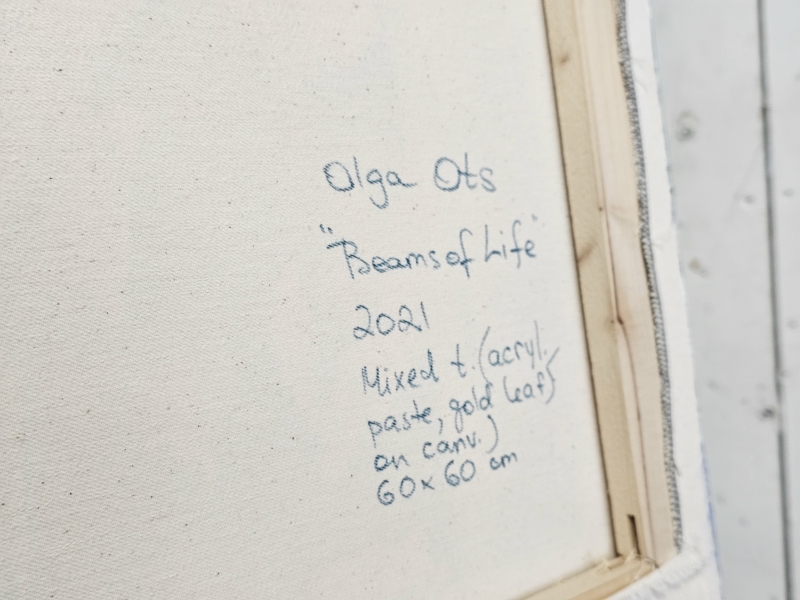 Olga Ots
"Beams of Life"
2021
Mixed t. (acryl.
paste, gold leaf)
on canv.)
60x60 cm